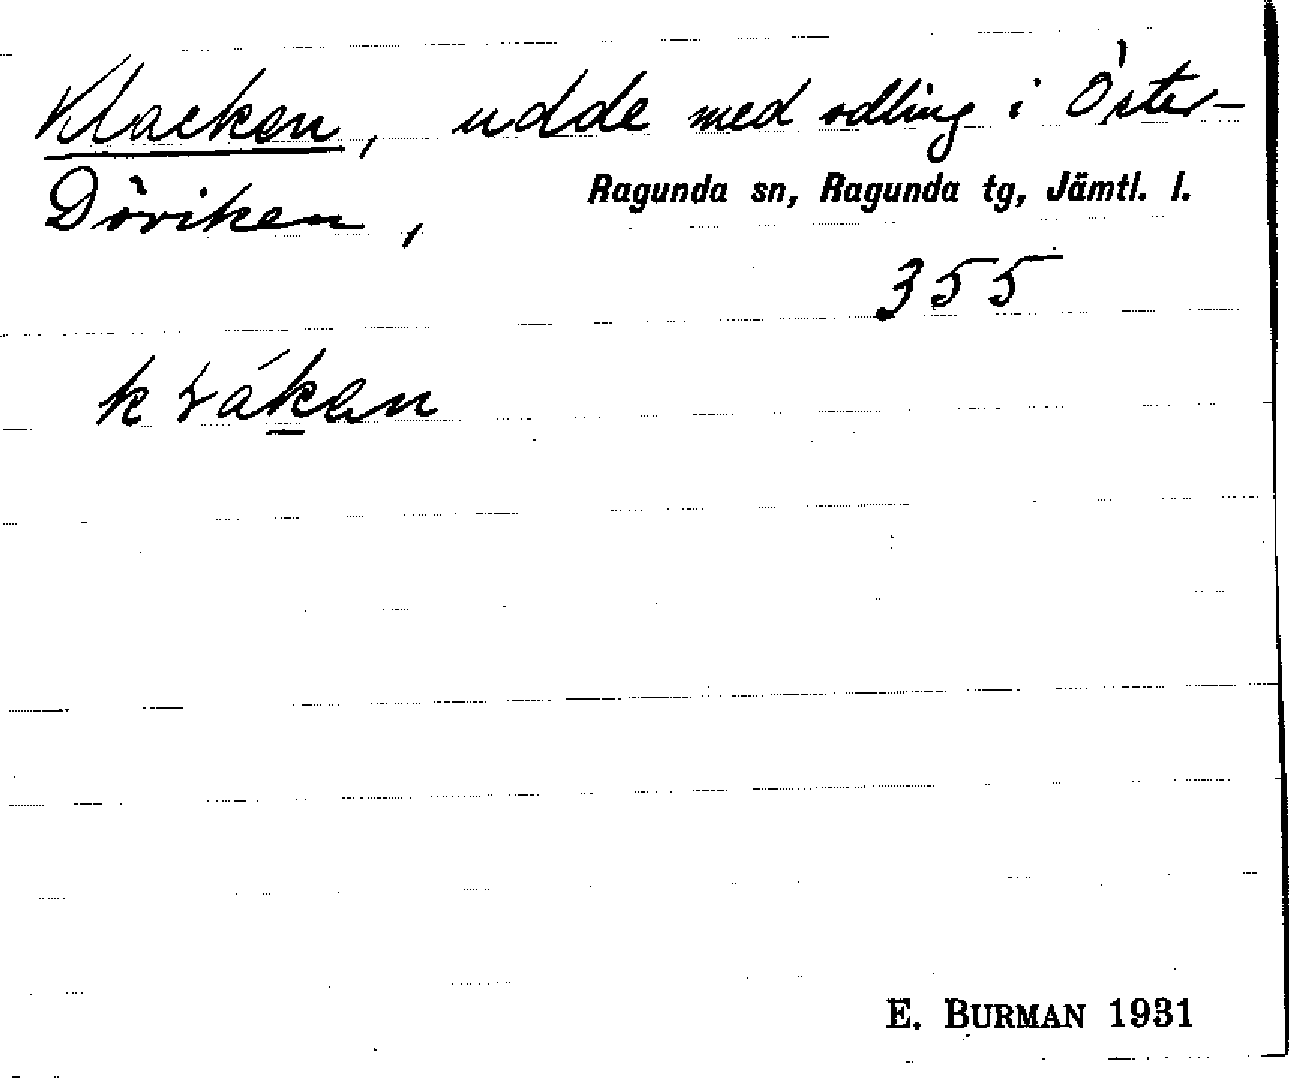 Klacken, udde med odling i Öster-
Döviken,
Ragunda sn, Ragunda tg, Jämtl. l.
355
E. BURMAN 1931